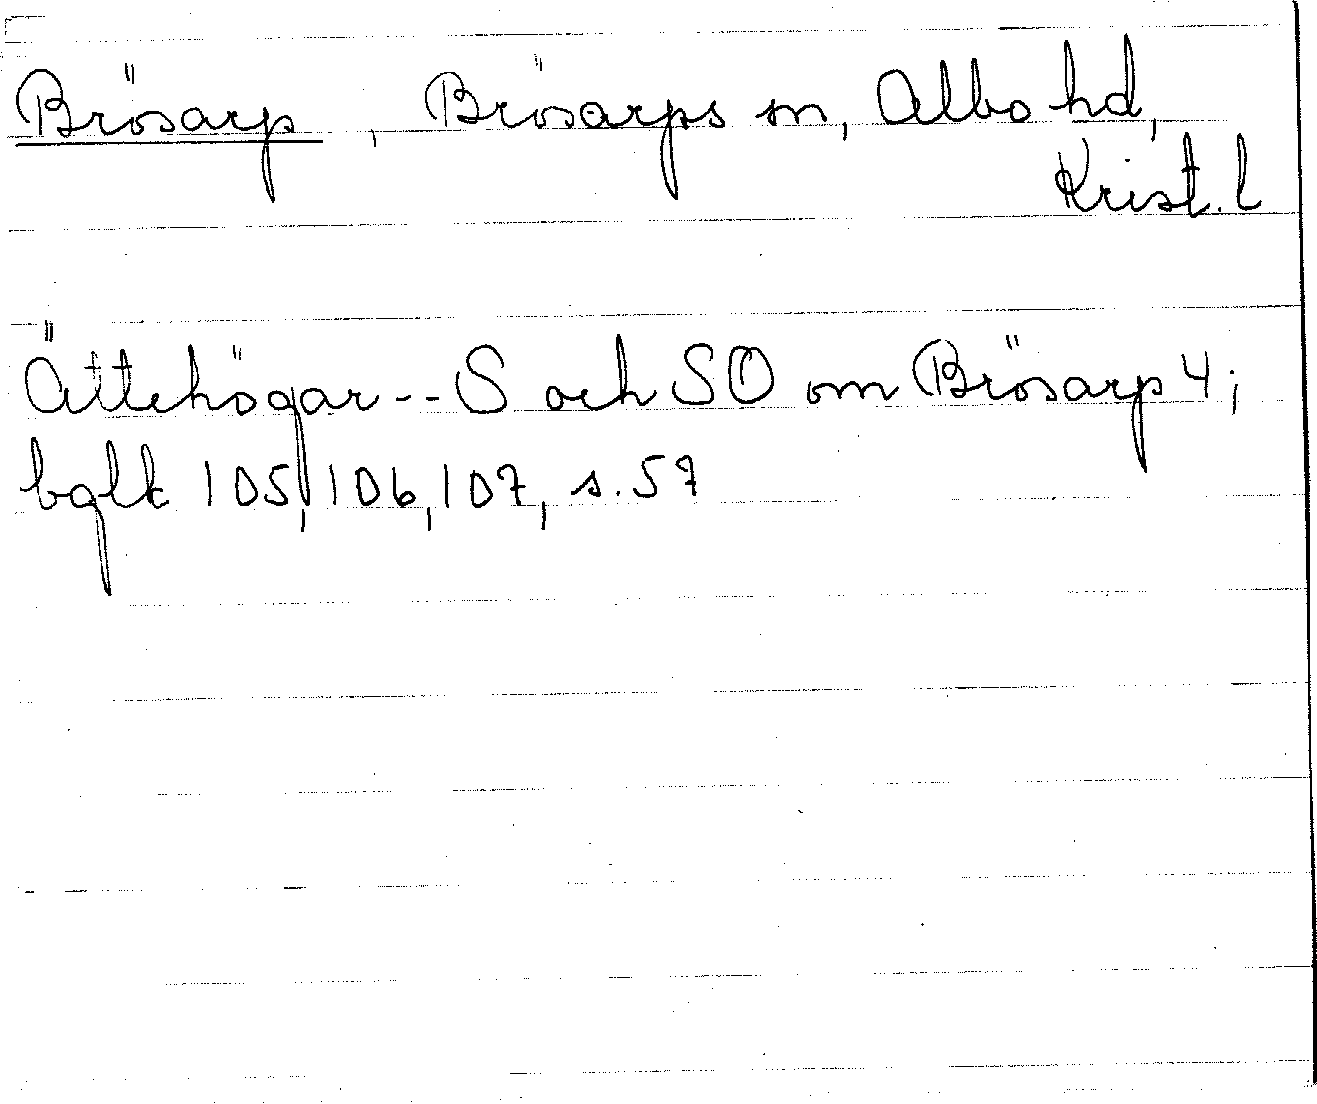 Brösarp, Brösarps sn, Albo hd,
Krist. l
Ättehögar -- S och SO om Brösarp 4;
bglk 105, 106, 107, s. 57